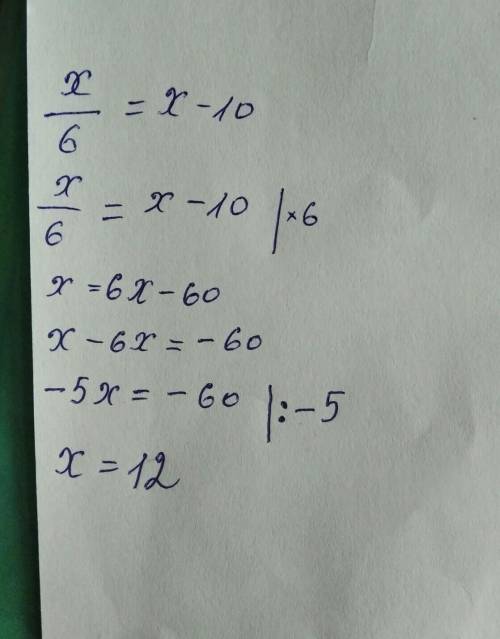 x/6 = x - 10
x/6 = x - 10 | × 6
x = 6x - 60
x - 6x = - 60
- 5x = - 60 | : - 5
x = 12